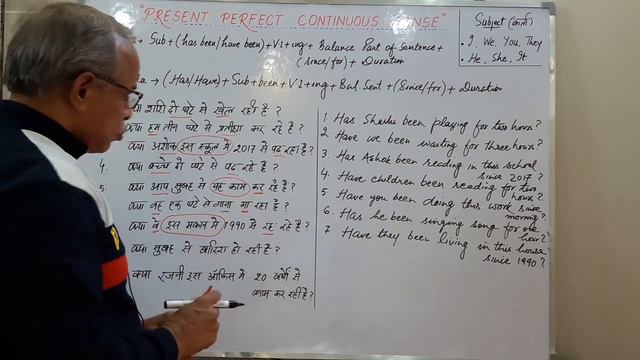 "PRESENT PERFECT CONTINUOUS TENSE"
Subject (कर्ता)
• I, We, You, They
• He, She, It
→ Sub + (has been/have been) + V1 + ing + Balance Part of Sentence +
(since/for) + Duration
→ (Has/Have) + Sub + been + V1 + ing + Bal. Sent + (Since/for) + Duration
शशि दो घंटे से खेल रही है ?
क्या हम तीन घंटे से प्रतीक्षा कर रहे हैं ?
क्या अशोक इस स्कूल में 2017 से पढ़ रहा है ?
4. क्या बच्चे दो घंटे से पढ़ रहे हैं ?
5. क्या आप सुबह से यह काम कर रहे हैं ?
6. क्या वह एक घंटे से गाना गा रहा है ?
क्या वे इस मकान में 1990 से रह रहे हैं ?
क्या सुबह से बारिश हो रही है ?
क्या रजनी इस ऑफिस में 20 वर्षों से
काम कर रही है ?
1. Has Shashi been playing for two hours ?
2. Have we been waiting for three hours ?
3. Has Ashok been reading in this school
since 2017 ?
4. Have children been reading for two
hours ?
5. Have you been doing this work since
morning ?
6. Has he been singing song for one
hour ?
7. Have they been living in this house
since 1990 ?